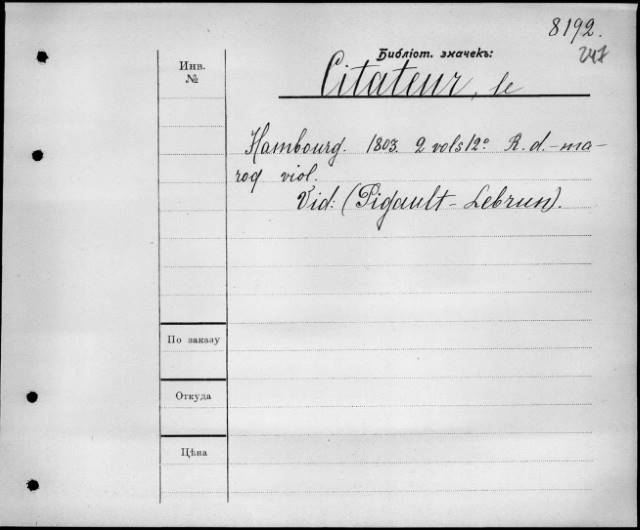 8192.
247
Библіот. значекъ:
Инв.
№
Citateur, le
Hambourg. 1803. 2 vols 12° R. d.-ma-
roq viol.
Vid: (Pigault-Lebrun).
По заказу
Откуда
Цѣна